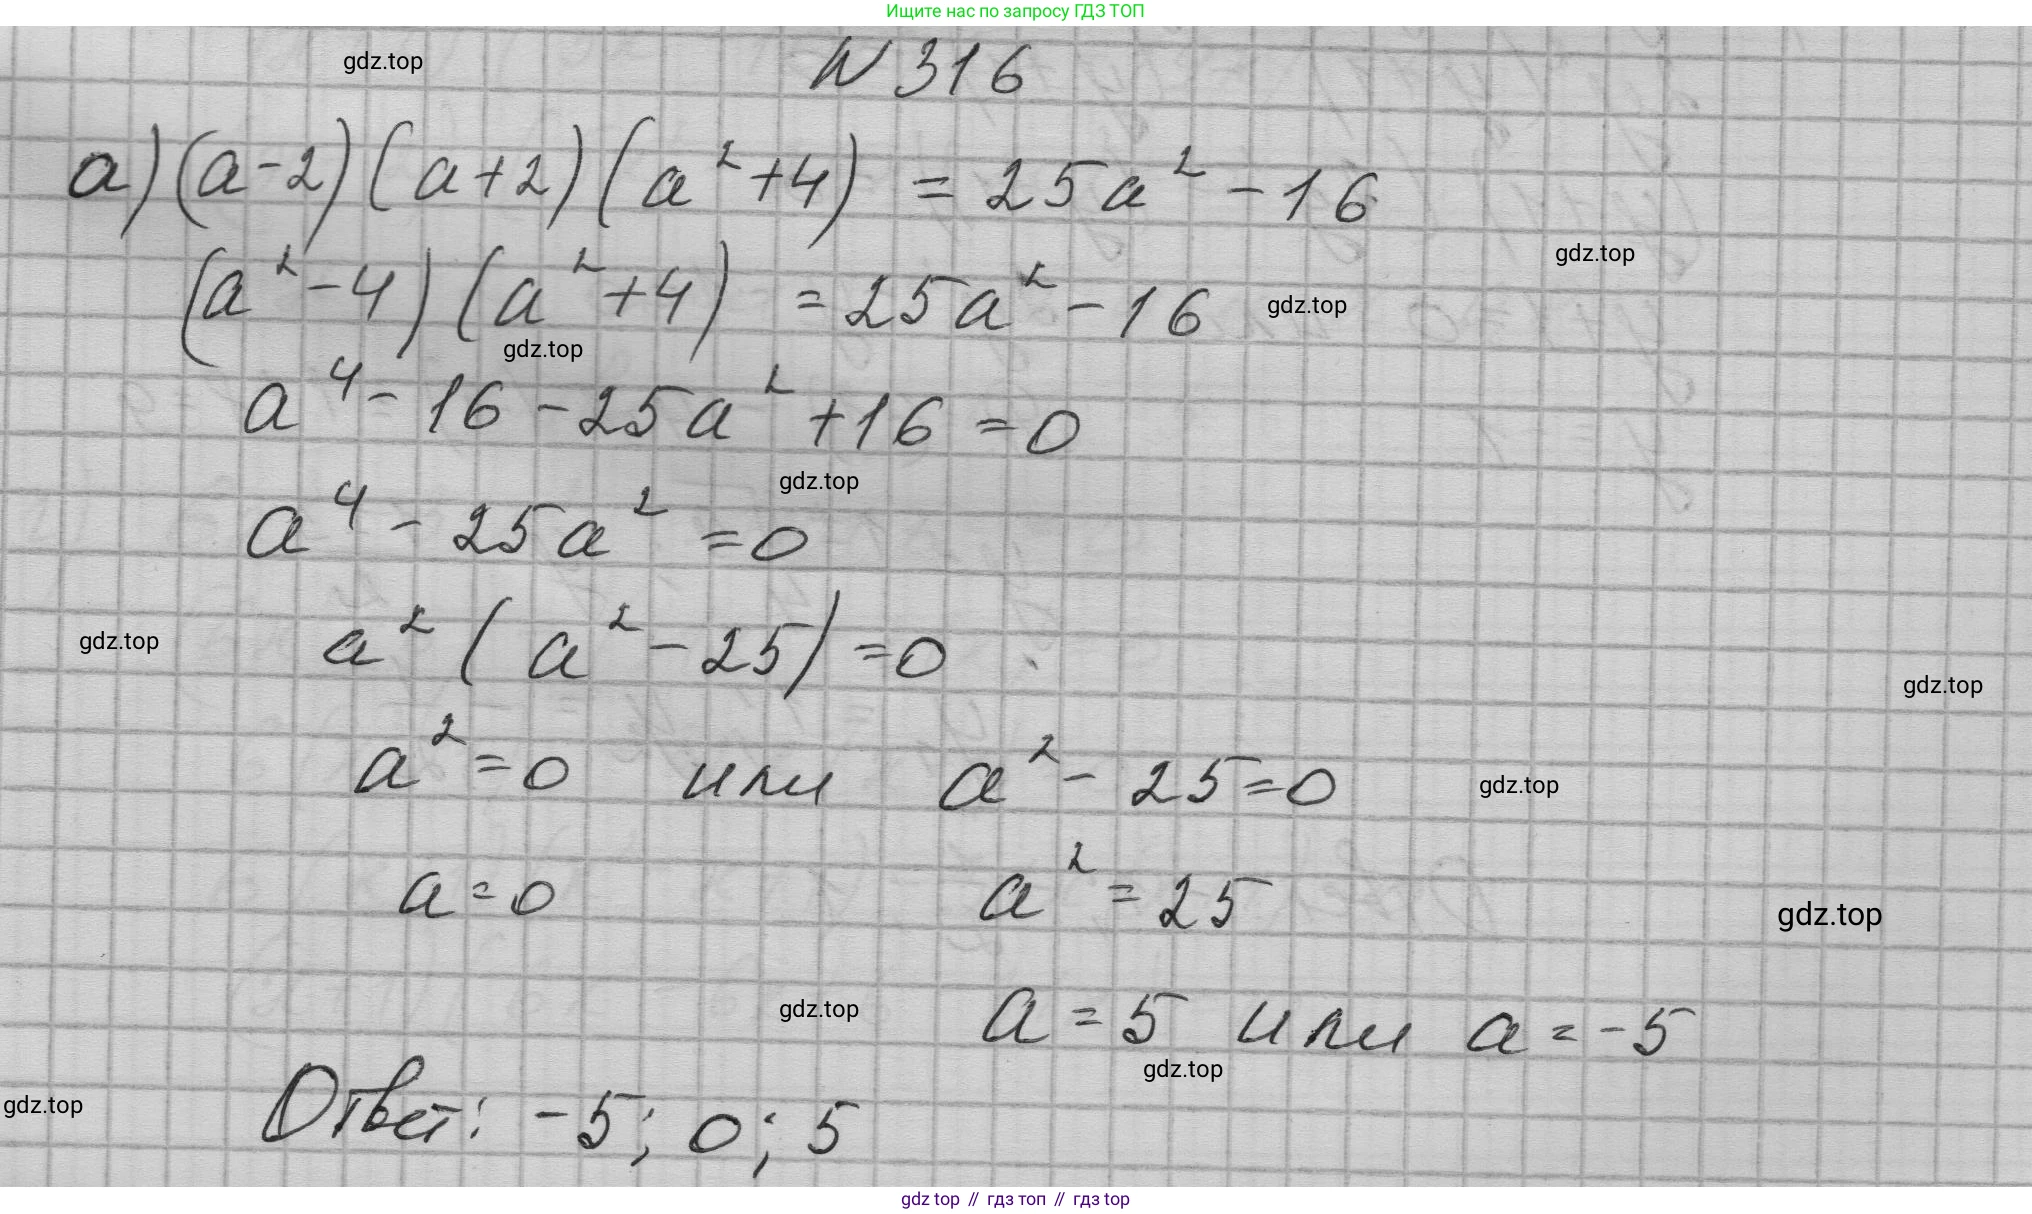 Ищите нас по запросу ГДЗ ТОП
gdz.top
N 316
а) (a-2)(a+2)(a²+4) = 25a² - 16
gdz.top
(a²-4)(a²+4) = 25a² - 16
gdz.top
gdz.top
a⁴ - 16 - 25a² + 16 = 0
gdz.top
a⁴ - 25a² = 0
gdz.top
a²(a² - 25) = 0
gdz.top
a² = 0 или a² - 25 = 0
gdz.top
a = 0 a² = 25
gdz.top
gdz.top
a = 5 или a = -5
gdz.top
gdz.top
Ответ: -5; 0; 5
gdz top // гдз топ // гдз top